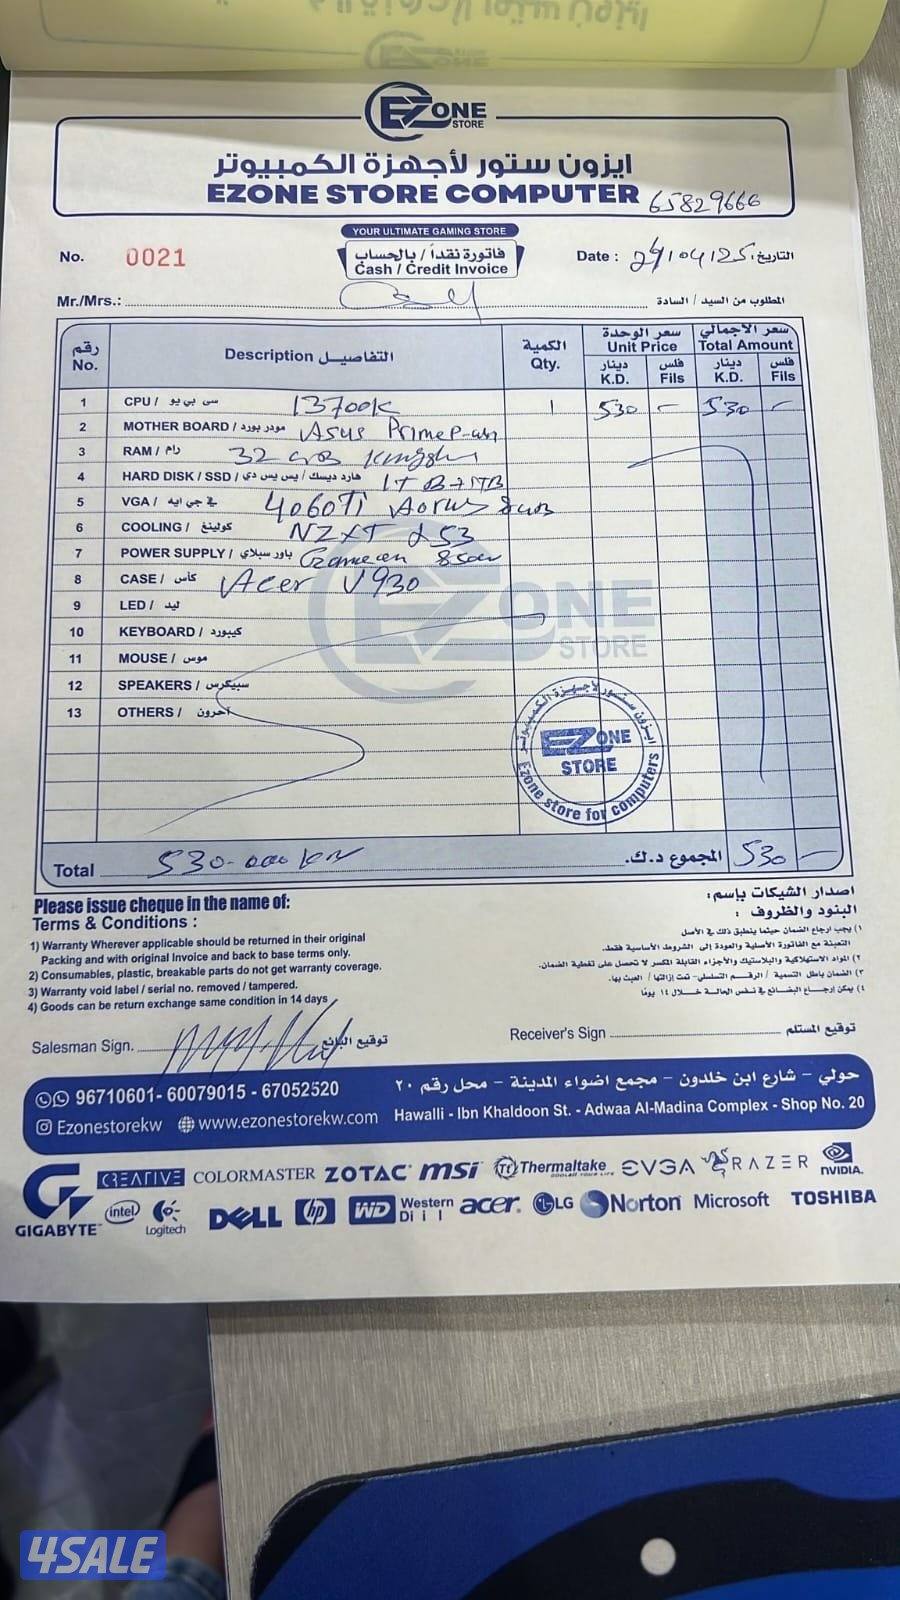 EZONE
STORE
ايزون ستور لأجهزة الكمبيوتر
EZONE STORE COMPUTER 65829666
YOUR ULTIMATE GAMING STORE
No. 0021
فاتورة نقداً / بالحساب
Cash / Credit Invoice
Date : 29/04/25 التاريخ:
Mr./Mrs.: المطلوب من السيد / السادة
رقم No. Description التفاصيل الكمية Qty. سعر الوحدة Unit Price سعر الاجمالي Total Amount
دينار K.D. فلس Fils دينار K.D. فلس Fils
1 CPU / سي بي يو 13700K 1 530 - 530 -
2 MOTHER BOARD / مودر بورد Asus Prime
3 RAM / رام 32 GB
4 HARD DISK / SSD / هارد ديسك / يس يس دي 1TB+1TB
5 VGA / في جي ايه 4060Ti Aorus 8GB
6 COOLING / كولينغ NZXT
7 POWER SUPPLY / باور سبلاي 850W
8 CASE / كأس Acer V930
9 LED / ليد
10 KEYBOARD / كيبورد
11 MOUSE / موس
12 SPEAKERS / سبيكرس
13 OTHERS / آخرون
EZONE
STORE
ايزون ستور لأجهزة الكمبيوتر
EZONE
STORE
Ezone store for computers
Total 530.000 KD المجموع د.ك. 530 -
Please issue cheque in the name of:
Terms & Conditions :
1) Warranty Wherever applicable should be returned in their original
Packing and with original Invoice and back to base terms only.
2) Consumables, plastic, breakable parts do not get warranty coverage.
3) Warranty void label / serial no. removed / tampered.
4) Goods can be return exchange same condition in 14 days
اصدار الشيكات بإسم:
البنود والظروف :
١) يجب ارجاع الضمان حيثما ينطبق ذلك في الأصل
التعبئة مع الفاتورة الأصلية والعودة إلى الشروط الأساسية فقط.
٢) المواد الاستهلاكية والبلاستيك والأجزاء القابلة للكسر لا تحصل على تغطية الضمان.
٣) الضمان باطل التسمية / الرقم التسلسلي- تمت إزالتها / العبث بها.
٤) يمكن إرجاع البضائع في نفس الحالة خلال ١٤ يومًا
Salesman Sign. توقيع البائع
Receiver's Sign توقيع المستلم
96710601- 60079015 - 67052520
Ezonestorekw www.ezonestorekw.com
حولي - شارع ابن خلدون - مجمع اضواء المدينة - محل رقم ٢٠
Hawalli - Ibn Khaldoon St. - Adwaa Al-Madina Complex - Shop No. 20
GIGABYTE CREATIVE COLORMASTER ZOTAC msi Thermaltake EVGA RAZER NVIDIA.
intel Logitech DELL hp WD Western Digital acer LG Norton Microsoft TOSHIBA
4SALE